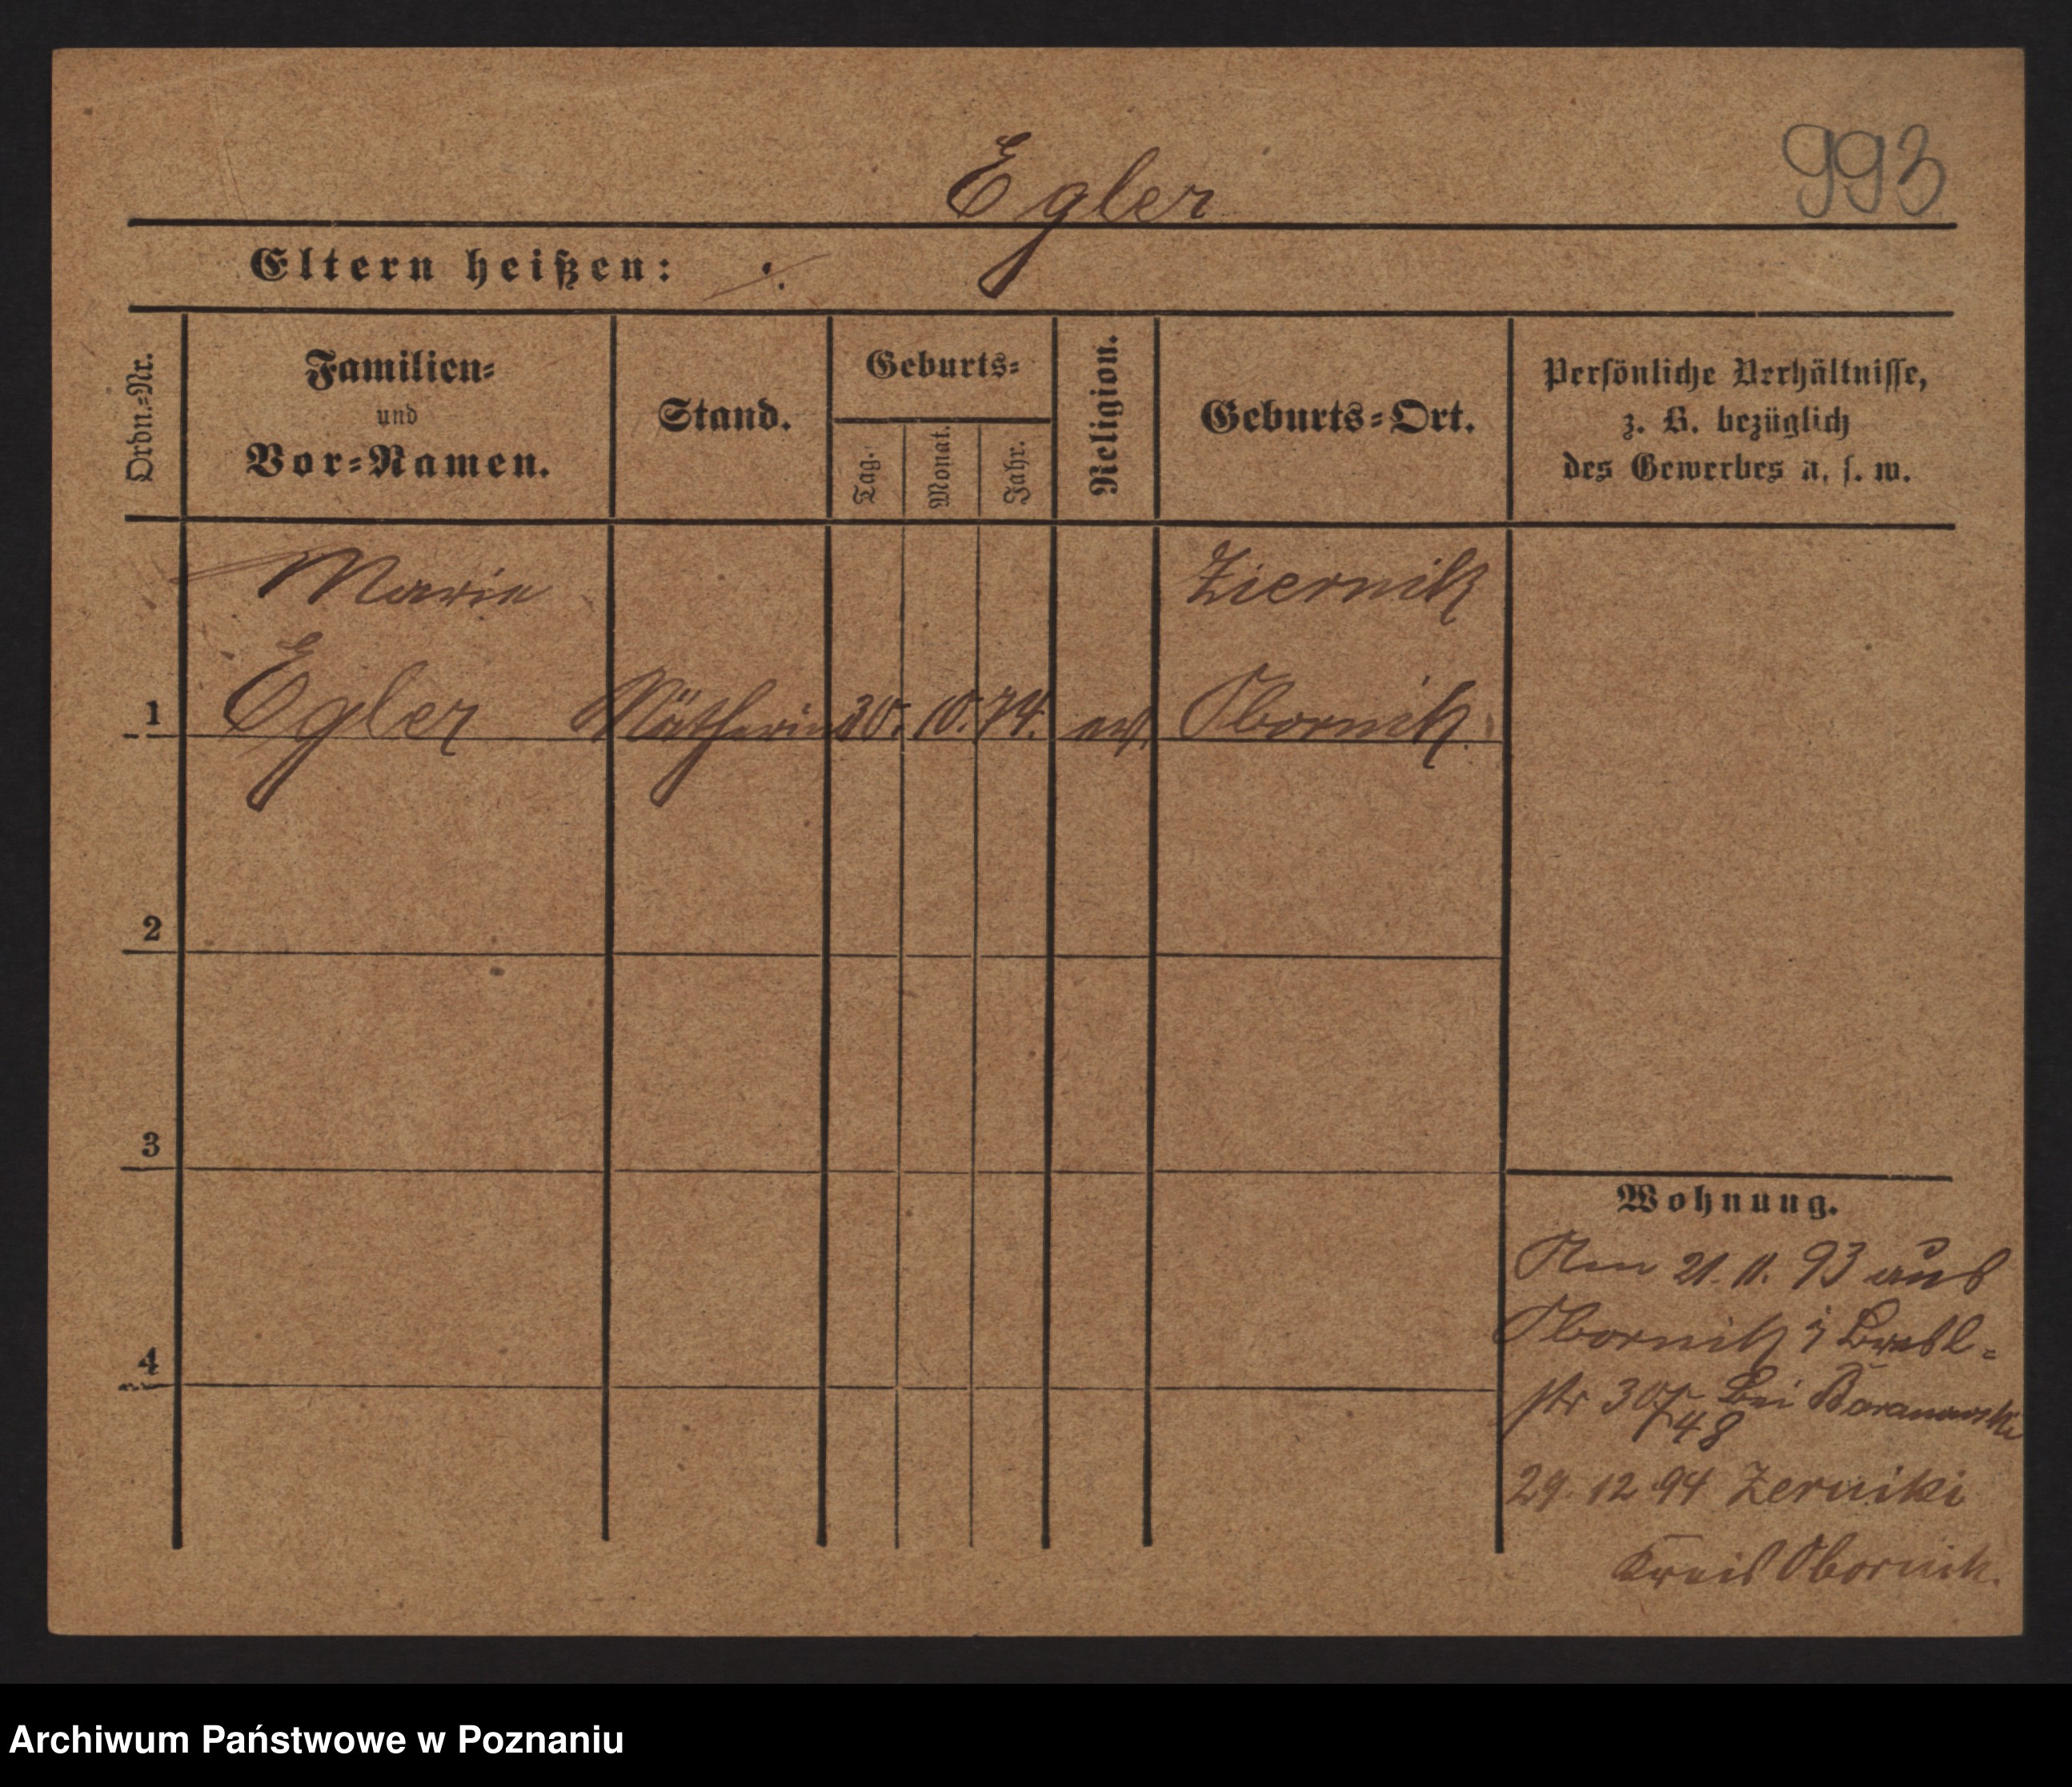 993
Egler
Eltern heißen: ./.
Ordn.-Nr.
Familien-
und
Vor-Namen.
Stand.
Geburts-
Tag.
Monat.
Jahr.
Religion.
Geburts-Ort.
Persönliche Verhältnisse,
z. B. bezüglich
des Gewerbes u. s. w.
Marie Ziernik
1 Egler Nätherin 30. 10. 74. Obornik.
2
3
4
Wohnung.
21. 11. 93 aus
Obornik Bresl-
str 30/48 bei Baranowski
29. 12 94 Zerniki
Kreis Obornik.
Archiwum Państwowe w Poznaniu